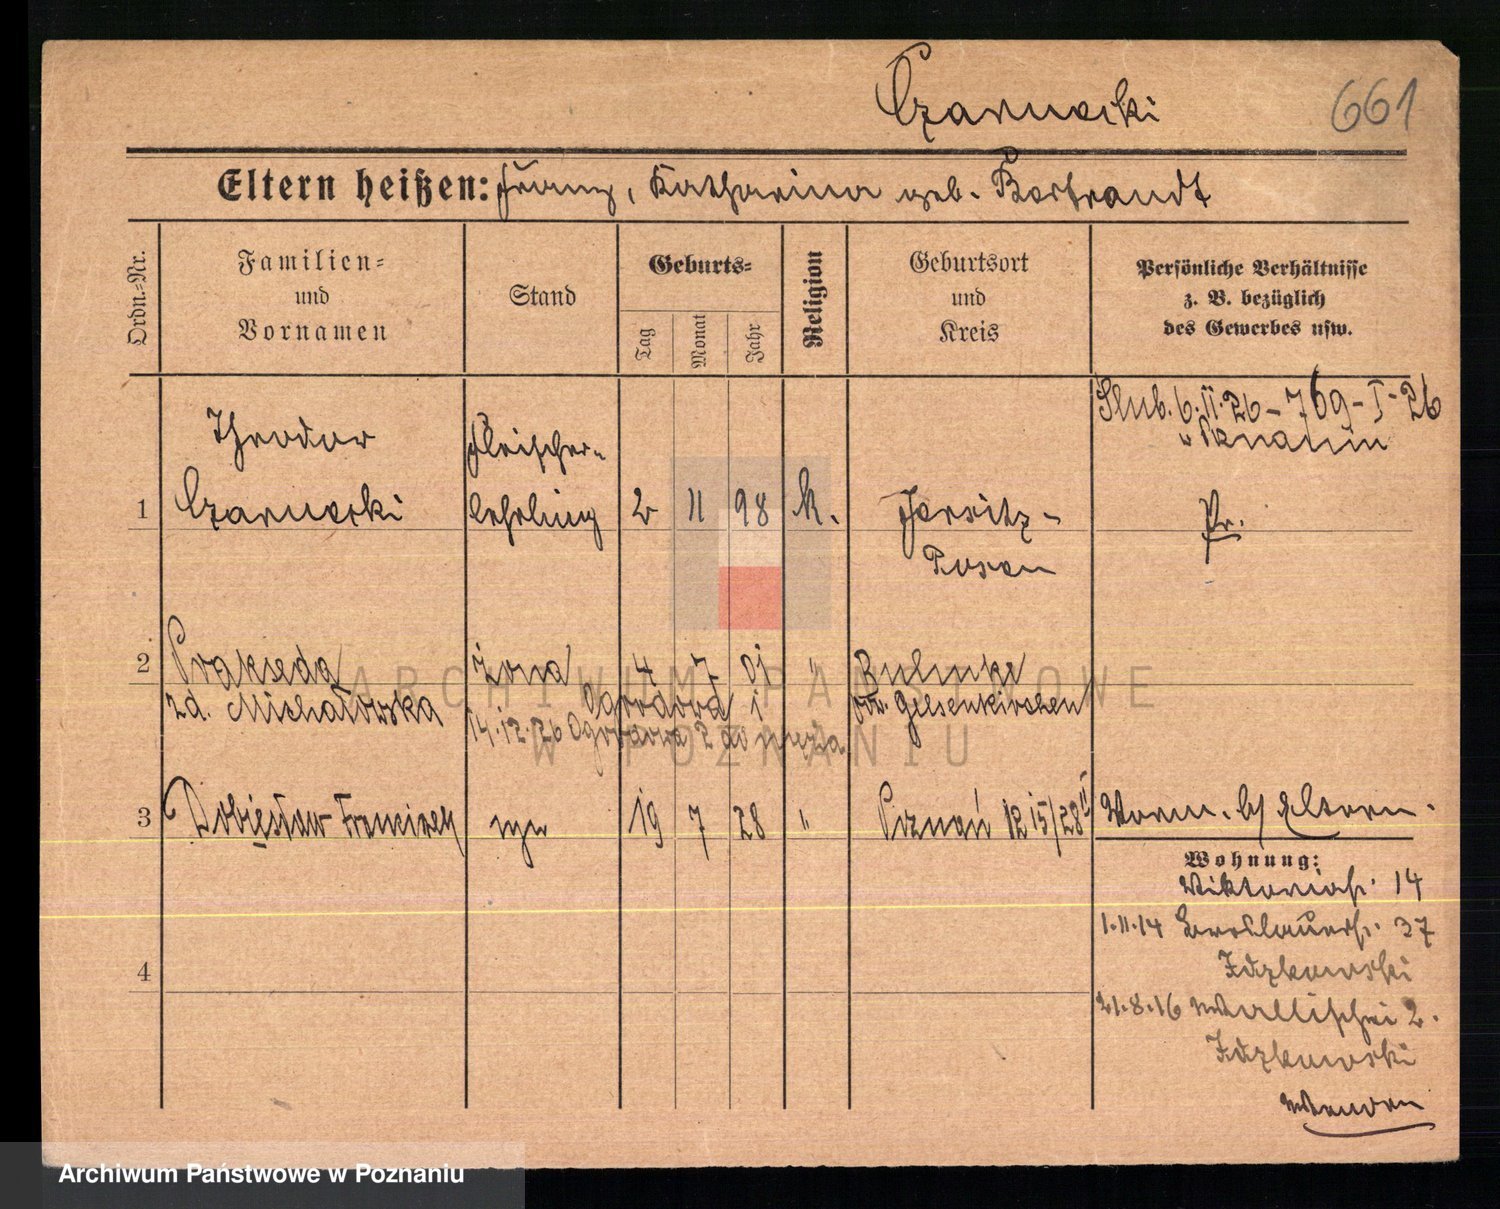 Czarnecki
661
Eltern heißen: Franz, Katharina geb. Borbrandt
Ordn.-Nr.
Familien-
und
Vornamen
Stand
Geburts-
Tag
Monat
Jahr
Religion
Geburtsort
und
Kreis
Persönliche Verhältnisse
z. B. bezüglich
des Gewerbes usw.
Ślub. 6.II.26 - 769-I-26
w Poznaniu
Theodor
Fleischer-
1 Czarnecki lehrling 2 11 98 k. Jersitz- Pr.
Posen
2 Prakseda żona 4 7 01 " Bulmke
zd. Michałowska Ogrodowa 1 Gelsenkirchen
14.12.26 Ogrodowa 2 do męża
3 Dobiesław Franciszek syn 19 7 28 " Poznań Worm. b/ Eltern.
Wohnung:
Viktoriastr. 14
1.11.14 Breslauerstr. 37
4
21.8.16 Wallischei 2.
ARCHIWUM PAŃSTWOWE
W POZNANIU
Archiwum Państwowe w Poznaniu